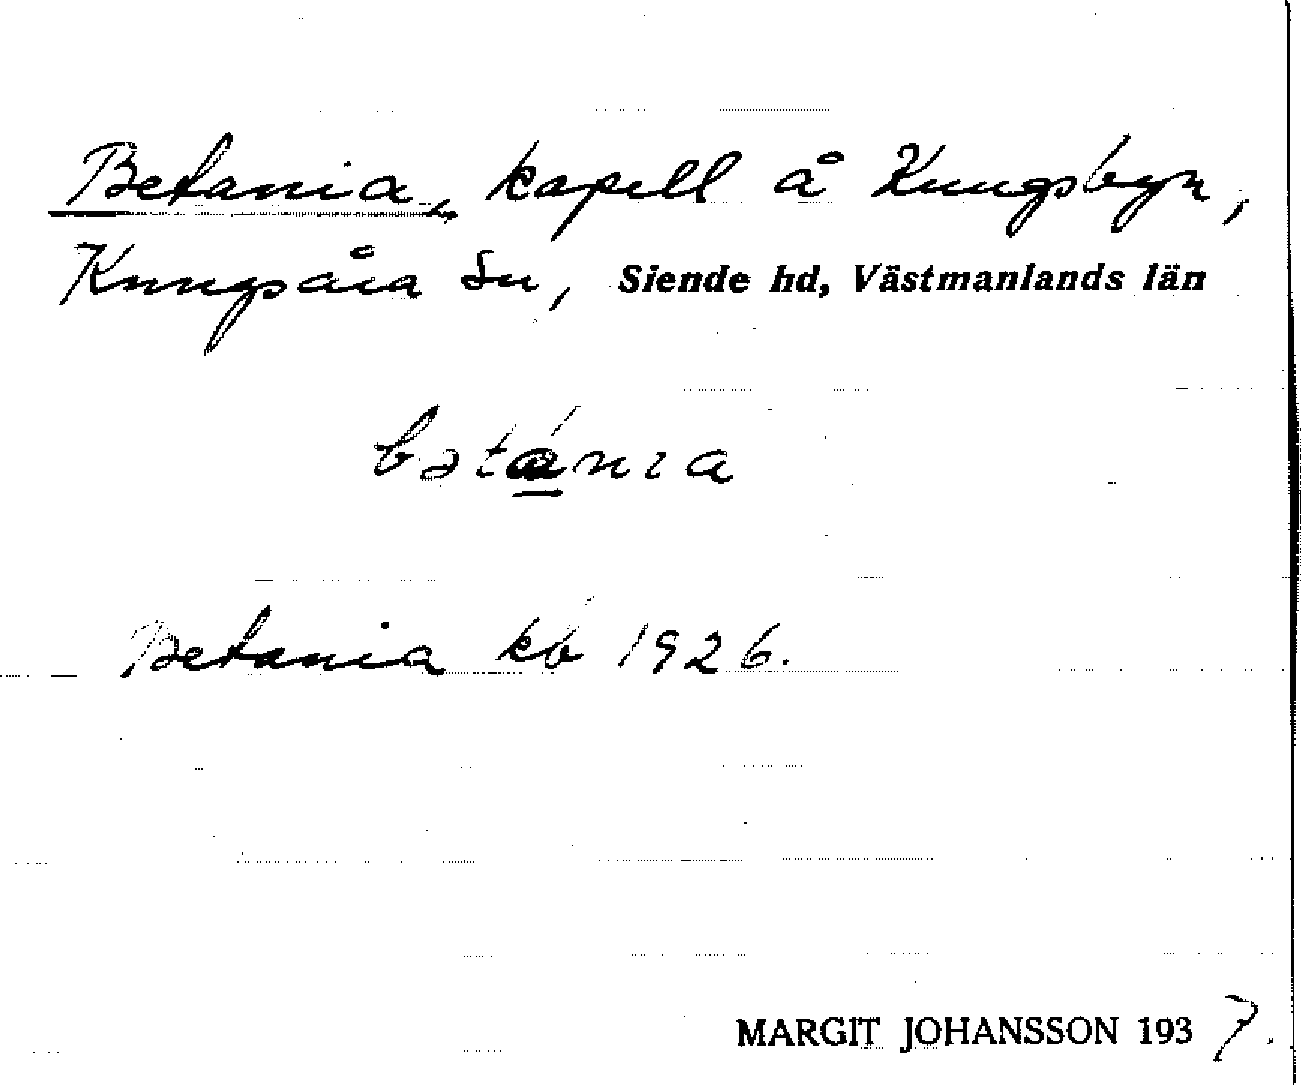 Betania, kapell å Kungsbyn,
Kungsåra sn, Siende hd, Västmanlands län
bətánɪa
Betania kb 1926.
MARGIT JOHANSSON 1937.